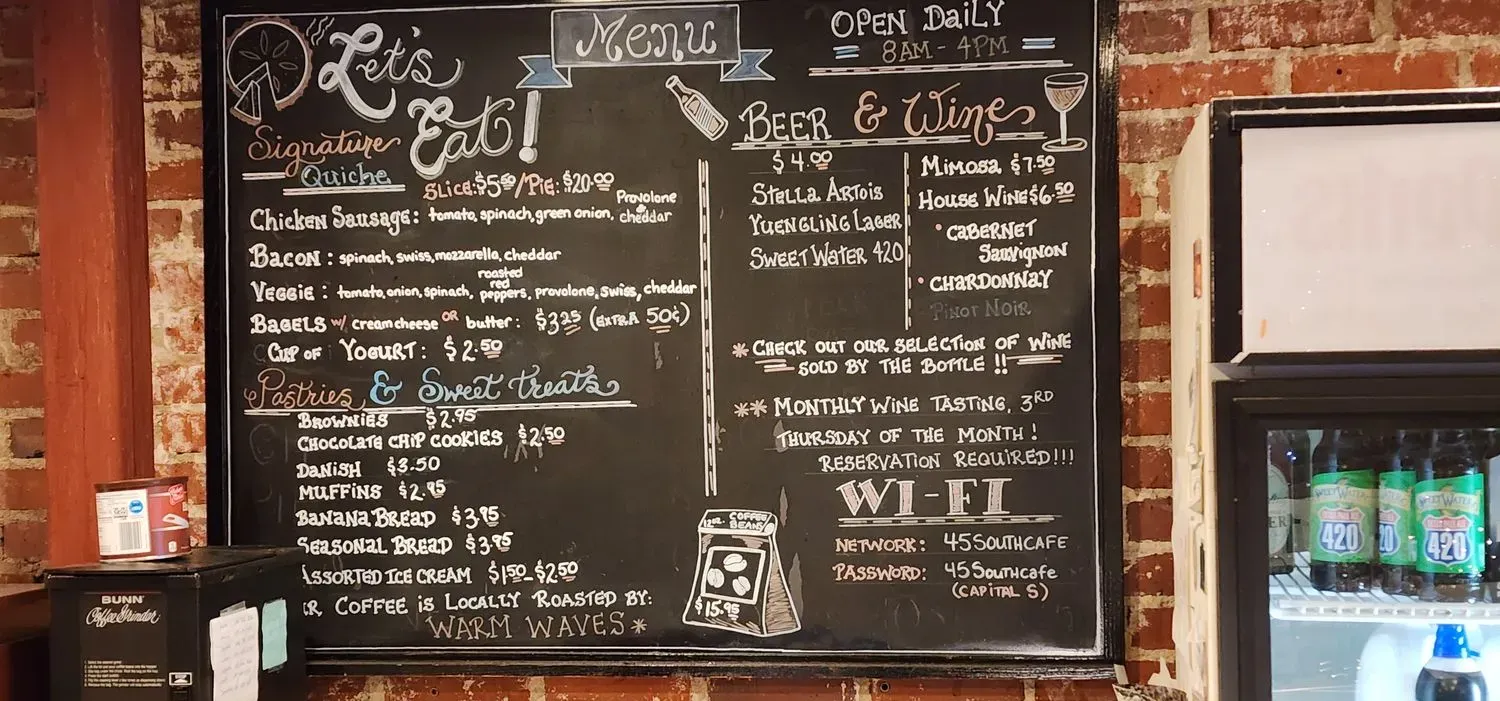 Let's
Eat!
Menu
OPEN DAILY
8AM - 4PM
Signature
Quiche
SLICE: $5.50/PIE: $20.00
CHICKEN SAUSAGE: tomato, spinach, green onion, Provolone & cheddar
BACON: spinach, swiss, mozzarella, cheddar
VEGGIE: tomato, onion, spinach, roasted red peppers, provolone, swiss, cheddar
BAGELS w/ cream cheese OR butter: $3.25 (EXTRA 50¢)
CUP OF YOGURT: $2.50
Pastries & Sweet treats
BROWNIES $2.95
CHOCOLATE CHIP COOKIES $2.50
DANISH $3.50
MUFFINS $2.95
BANANA BREAD $3.95
SEASONAL BREAD $3.95
ASSORTED ICE CREAM $1.50-$2.50
R COFFEE is LOCALLY ROASTED BY:
WARM WAVES*
12oz. COFFEE
BEANS
$15.95
BEER & Wine
$4.00
STELLA ARTOIS
YUENGLING LAGER
SWEETWATER 420
MIMOSA $7.50
HOUSE WINE $6.50
• CABERNET
SAUVIGNON
• CHARDONNAY
PINOT NOIR
* CHECK OUT OUR SELECTION OF WINE
SOLD BY THE BOTTLE !!
** MONTHLY WINE TASTING, 3RD
THURSDAY OF THE MONTH!
RESERVATION REQUIRED!!!
WI-FI
NETWORK: 45SOUTHCAFE
PASSWORD: 45Southcafe
(CAPITAL S)
BUNN
Coffee Grinder
SWEETWATER
420
20
SWEETWATER
420